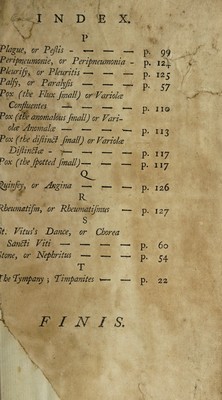 INDEX.
P
Plague, or Pestis - — — — p. 99
Peripneumonie, or Peripneumonia - p. 124
Pleurisy, or Pleuritis — — — p. 125
Palsy, or Paralysis — — p. 57
Pox (the Flux small) or Variolæ
Confluentes — — — — p. 110
Pox (the anomalous small) or Vari-
olæ Anomalæ — — — p. 113
Pox (the distinct small) or Variolæ
Distinctæ - — — — — p. 117
Pox (the spotted small) — — — p. 117
Q
Quinsey, or Angina — — — p. 126
R
Rheumatism, or Rheumatismus — p. 127
S
St. Vitus's Dance, or Chorea
Sancti Viti — — — — p. 60
Stone, or Nephritus — — — p. 54
T
The Tympany; Timpanites — — p. 22
FINIS.